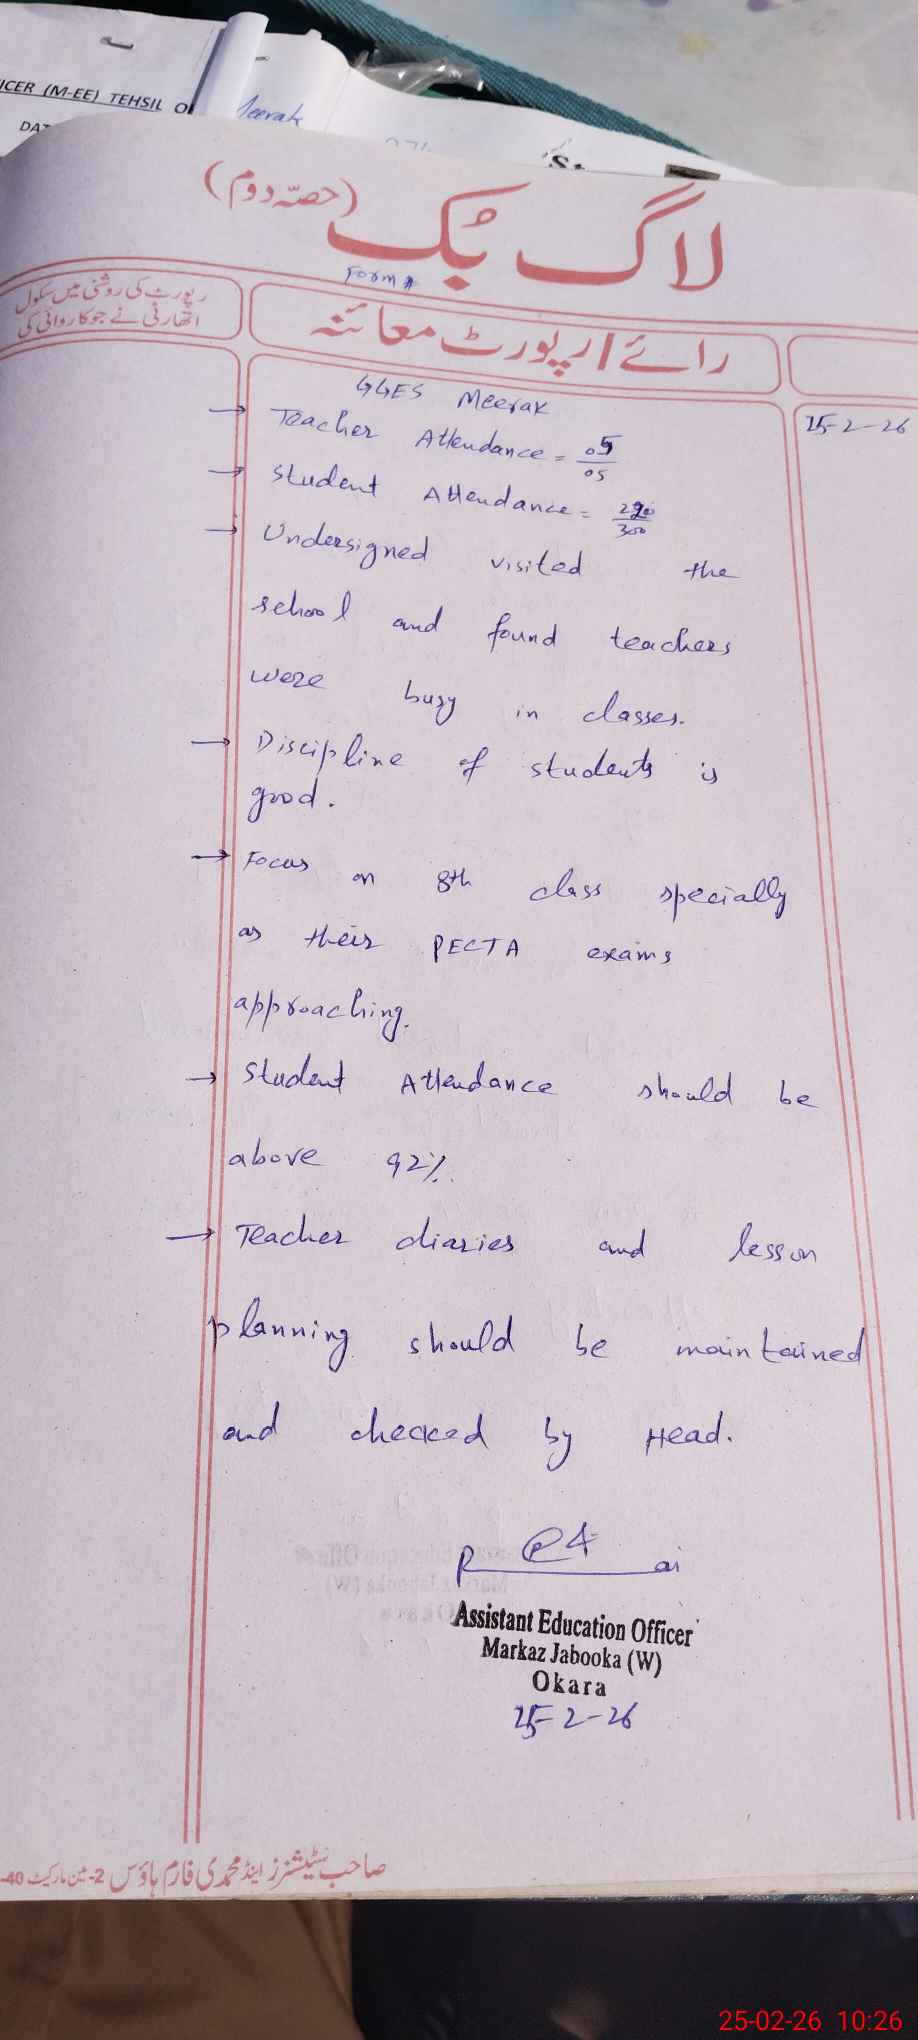 ICER (M-EE) TEHSIL O
Meerak
DAT
لاگ بُک (حصّہ دوم)
Form #
رپورٹ کی روشنی میں سکول
اتھارٹی نے جو کاروائی کی
رائے / رپورٹ معائنہ
GGES Meerak
25-2-26
→ Teacher Attendance = 05/05
→ Student Attendance = 290/300
→ Undersigned visited the
school and found teachers
were busy in classes.
→ Discipline of students is
good.
→ Focus on 8th class specially
as their PECTA exams
approaching.
→ Student Attendance should be
above 92%.
→ Teacher diaries and lesson
planning should be maintained
and checked by Head.
Assistant Education Officer
Markaz Jabooka (W)
Okara
25-2-26
صاحب سٹیشنرز اینڈ محمدی فارم ہاؤس 2-مین مارکیٹ 40-
25-02-26 10:26